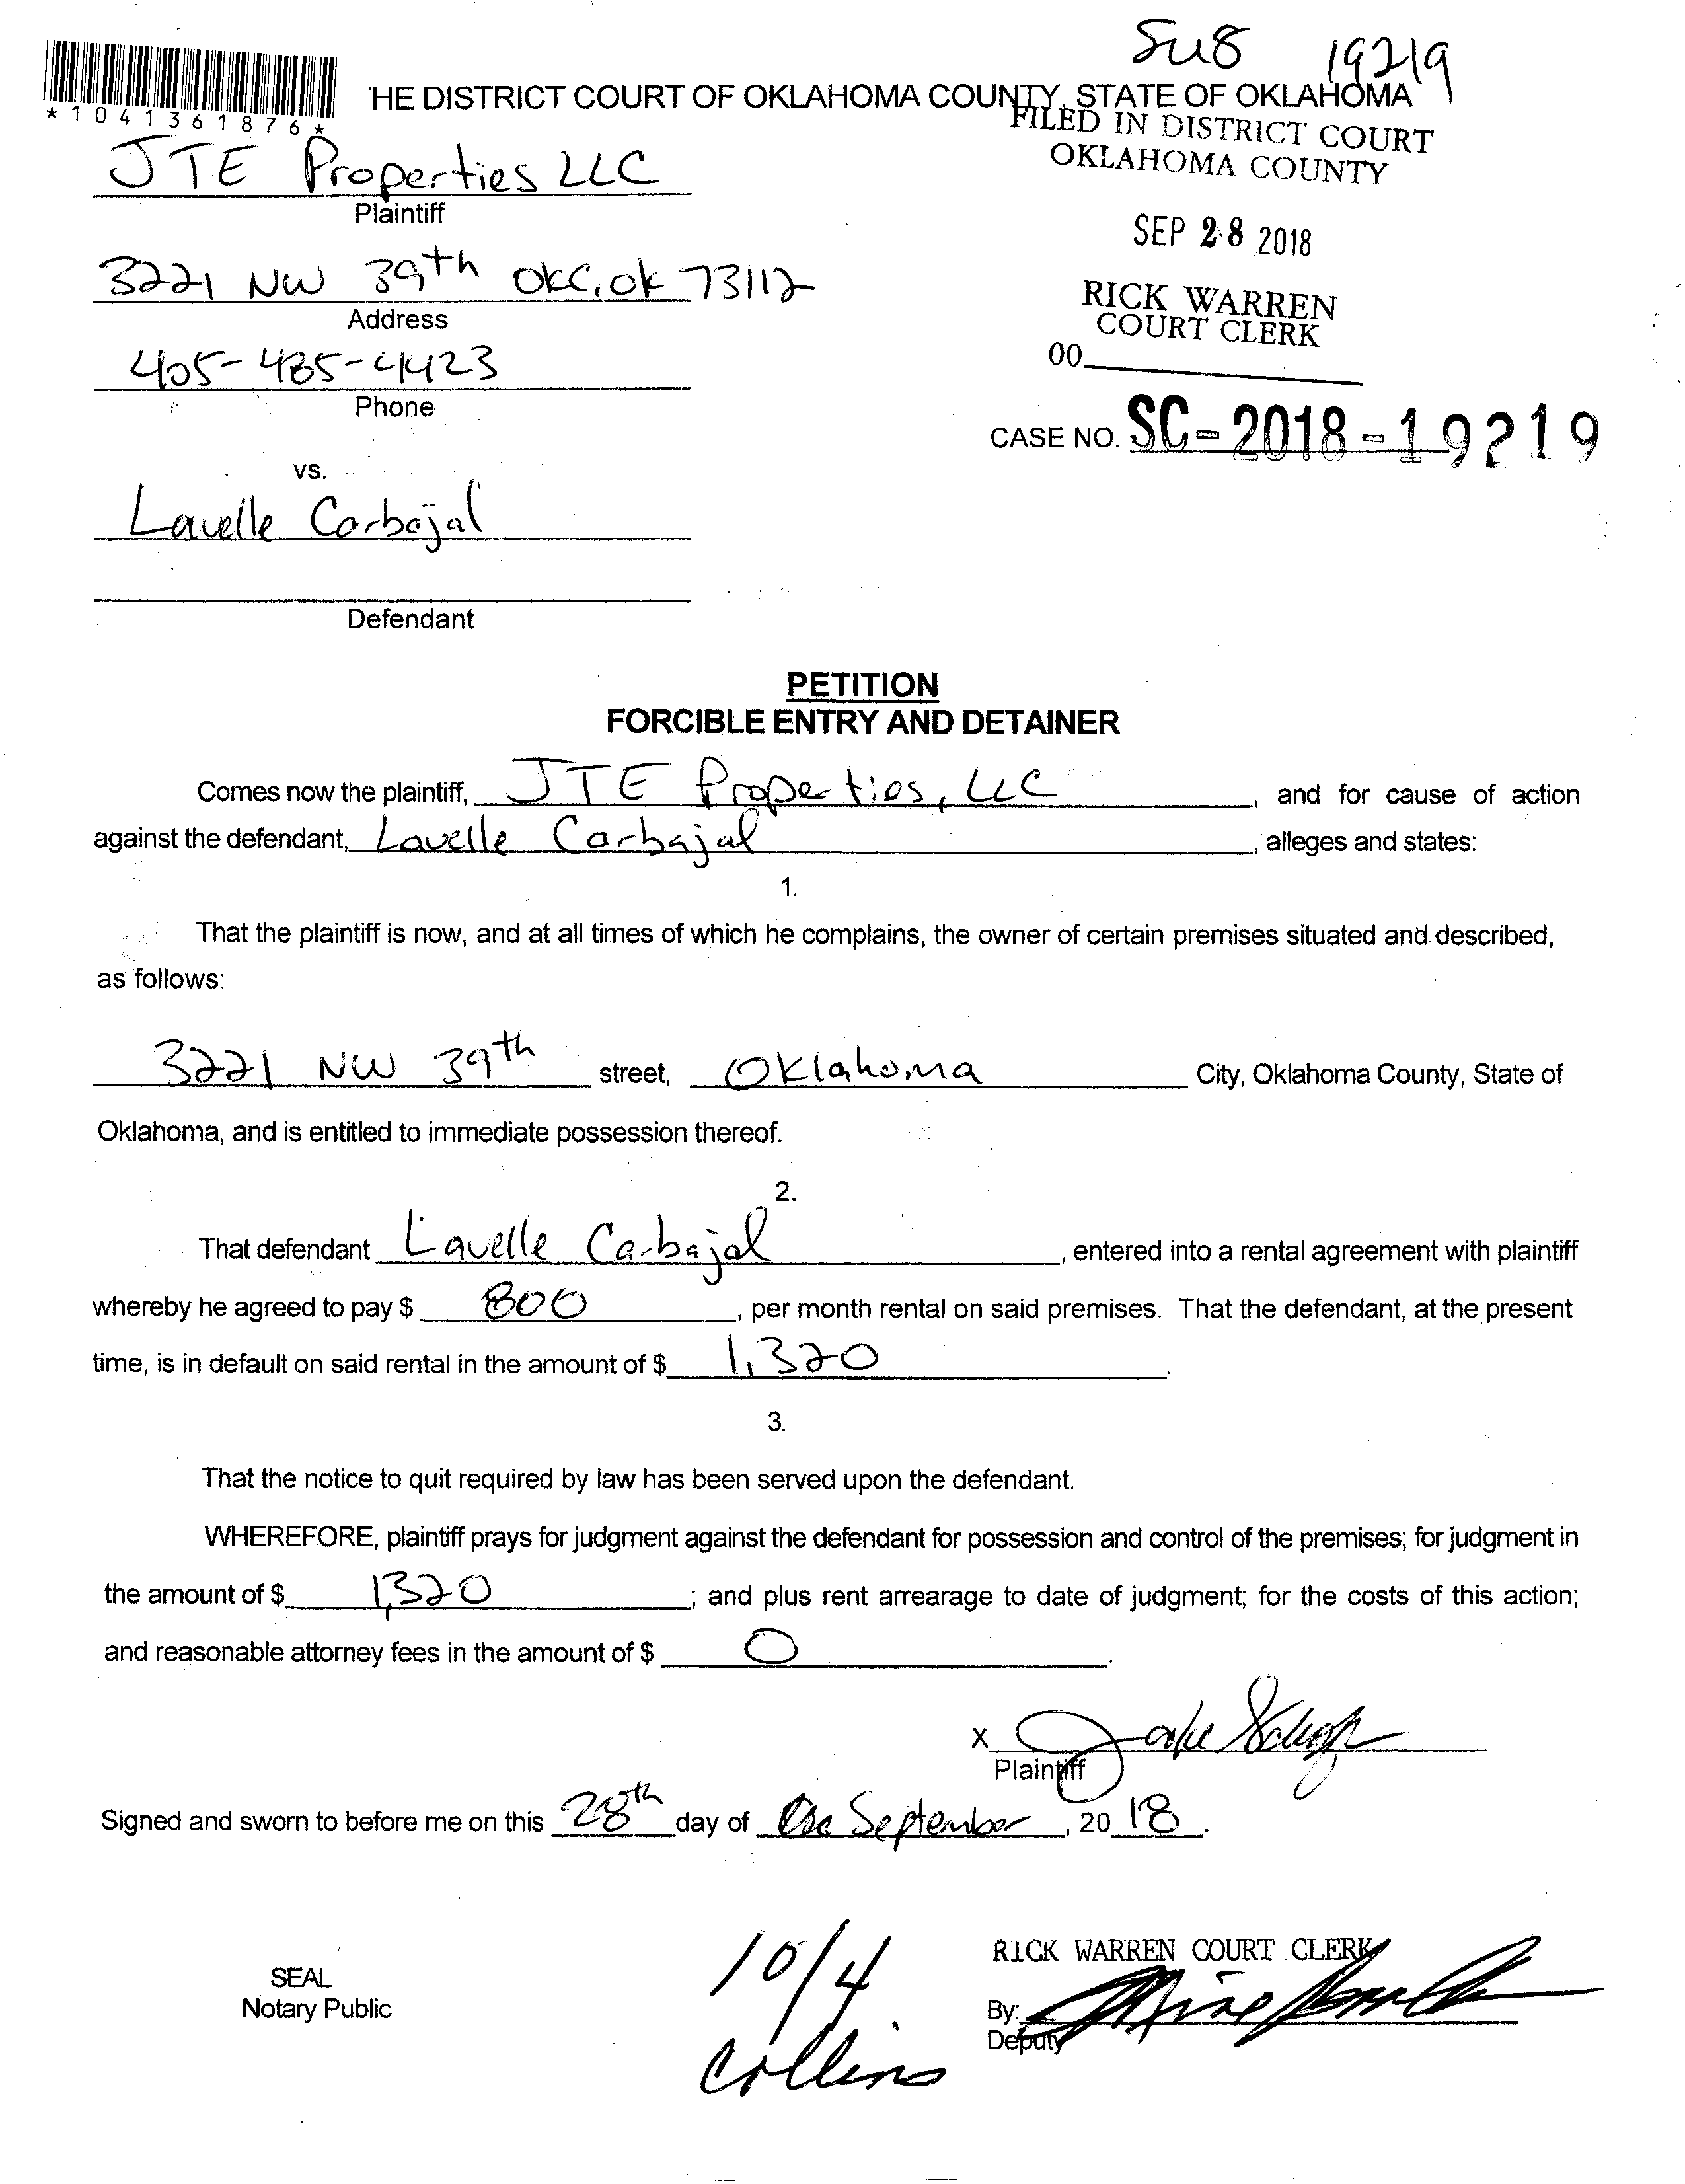 Su8 19219
HE DISTRICT COURT OF OKLAHOMA COUNTY, STATE OF OKLAHOMA
*1041361876*
FILED IN DISTRICT COURT
OKLAHOMA COUNTY
JTE Properties LLC
Plaintiff
SEP 28 2018
3221 NW 39th OKC, OK 73112
Address
RICK WARREN
COURT CLERK
405-485-4423
00
Phone
CASE NO. SC-2018-19219
vs.
Lavelle Carbajal
Defendant
PETITION
FORCIBLE ENTRY AND DETAINER
Comes now the plaintiff, JTE Properties, LLC, and for cause of action
against the defendant, Lavelle Carbajal, alleges and states:
1.
That the plaintiff is now, and at all times of which he complains, the owner of certain premises situated and described,
as follows:
3221 NW 39th street, Oklahoma City, Oklahoma County, State of
Oklahoma, and is entitled to immediate possession thereof.
2.
That defendant Lavelle Carbajal, entered into a rental agreement with plaintiff
whereby he agreed to pay $ 800, per month rental on said premises. That the defendant, at the present
time, is in default on said rental in the amount of $ 1,320.
3.
That the notice to quit required by law has been served upon the defendant.
WHEREFORE, plaintiff prays for judgment against the defendant for possession and control of the premises; for judgment in
the amount of $ 1,320; and plus rent arrearage to date of judgment; for the costs of this action;
and reasonable attorney fees in the amount of $ 0.
X Jake
Plaintiff
Signed and sworn to before me on this 28th day of September, 20 18.
10/4
Collins
RICK WARREN COURT CLERK
SEAL
Notary Public
By:
Deputy